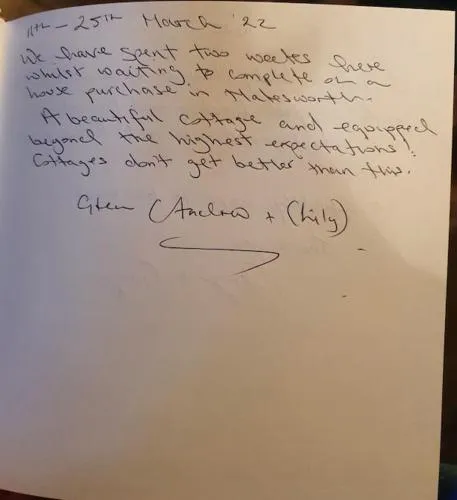 11th - 25th March '22
We have spent two weeks here
whilst waiting to complete on a
house purchase in Halesworth.
A beautiful cottage and equipped
beyond the highest expectations!
Cottages don't get better than this.
(Andrew + (Lily)